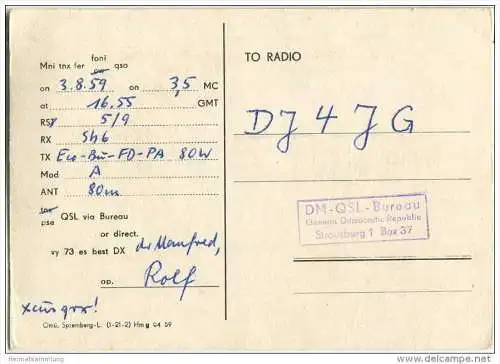 foni
Mni tnx fer cw qso
on 3.8.59 on 3,5 MC
at 16.55 GMT
RST 5/9
RX Sh6
TX Eco-Bu-FD-PA 80W
Mod A
ANT 80m
tnx
pse QSL via Bureau
or direct.
vy 73 es best DX dr Manfred,
op. Rolf
xcus qrx!
Omü, Spremberg-L. (1-21-2) Hm g 04 59
TO RADIO
DJ4JG
DM-QSL-Bureau
German Democratic Republic
Strausberg 1 Box 37
Heimatsammlung
www.delcampe.net